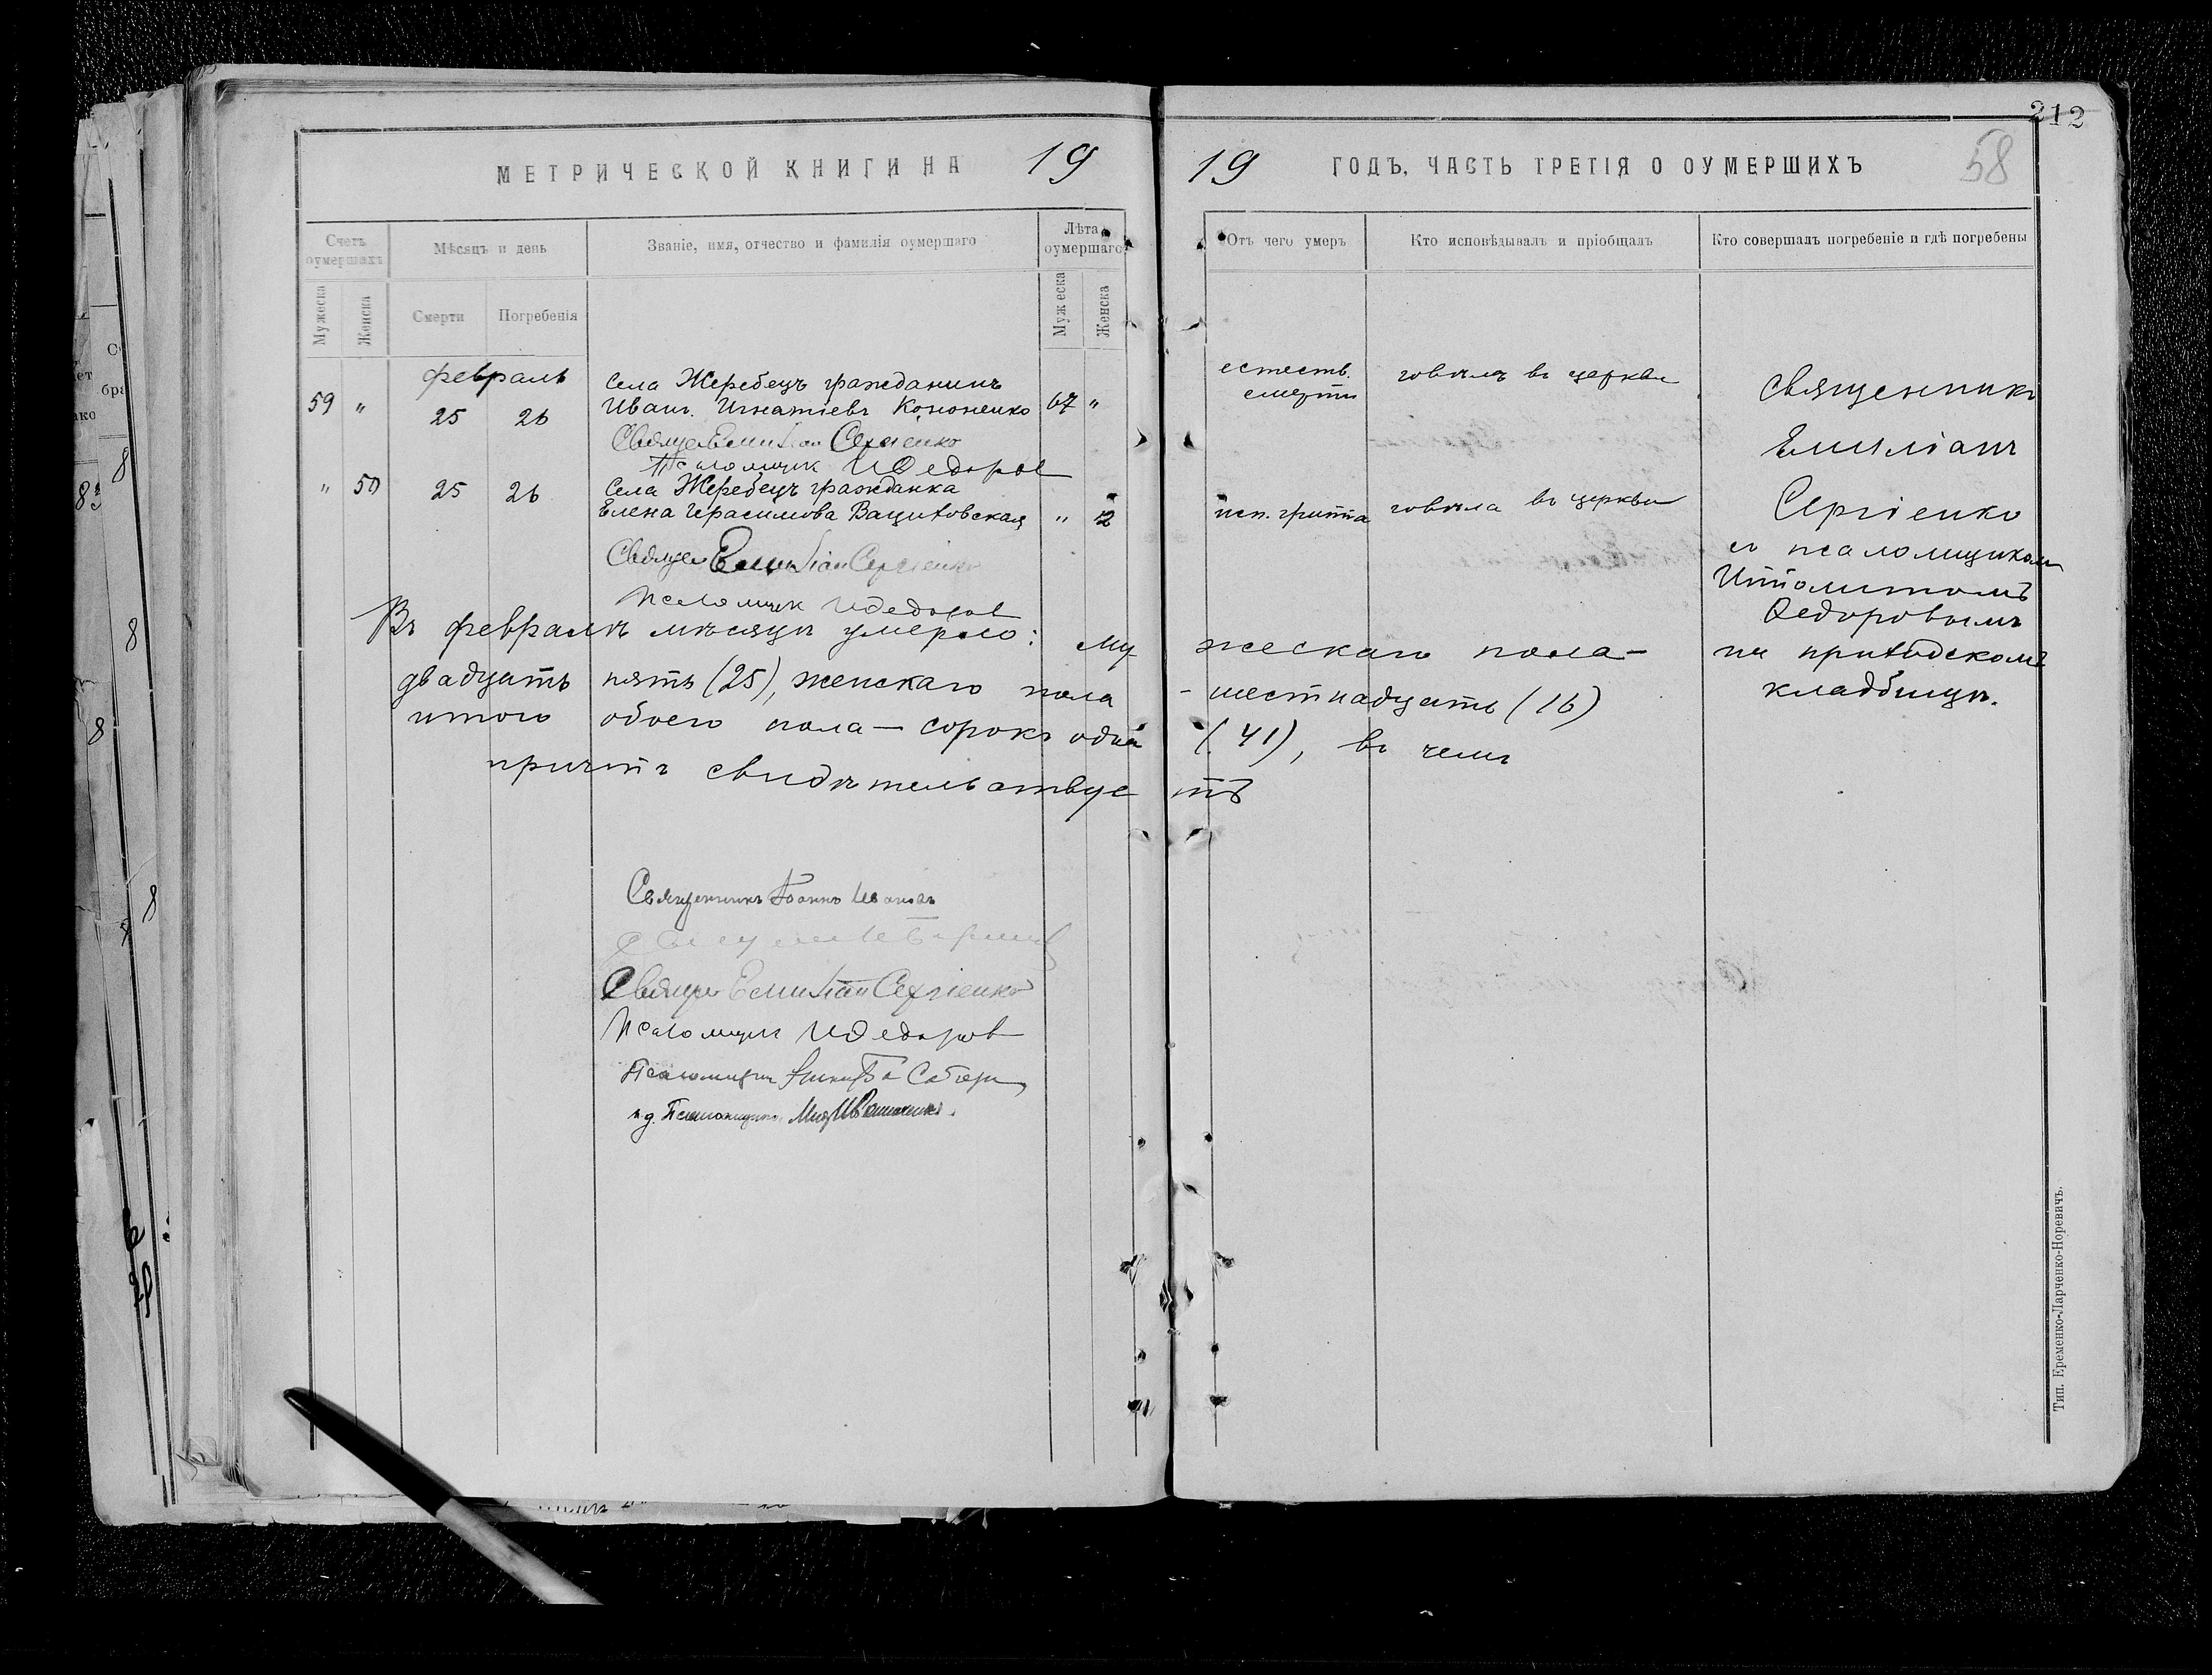 212
58
МЕТРИЧЕСКОЙ КНИГИ НА 19
19 ГОДЪ, ЧАСТЬ ТРЕТІЯ О ОУМЕРШИХЪ
Счетъ оумершихъ
Мѣсяцъ и день
Званіе, имя, отчество и фамилія оумершаго
Лѣта оумершаго
Отъ чего умеръ
Кто исповѣдывалъ и пріобщалъ
Кто совершалъ погребеніе и гдѣ погребены
Мужеска
Женска
Смерти
Погребенія
Мужеска
Женска
февраль
59 " 25 26
села Жеребецъ гражданинъ
Иванъ Игнатіевъ Кононенко 67 "
естеств.
смерти
говѣлъ въ церкви
Свящ Емиліан Сергіенко
Псаломщик И Федоров
" 50 25 26
села Жеребецъ гражданка
Елена Герасимова " 12
исп. гриппа
говѣла въ церкви
Свящ Емиліан Сергіенко
Псаломщик И Федоров
священникъ
Емиліанъ
Сергіенко
съ псаломщикомъ
Ипполитомъ
Ѳедоровымъ
на приходскомъ
кладбищѣ.
Въ февралѣ мѣсяцѣ умерло: мужескаго пола —
двадцать пять (25), женскаго пола - шестнадцать (16)
итого обоего пола — сорокъ одна (41), въ чемъ
причтъ свидѣтельствуетъ
Священникъ Іоаннъ Ивановъ
Свящ Емиліан Сергіенко
Псаломщик И Федоров
Псаломщик
и. д. Псаломщика
Тип. Еременко-Ларченко-Норевичъ.
8
8
8
8